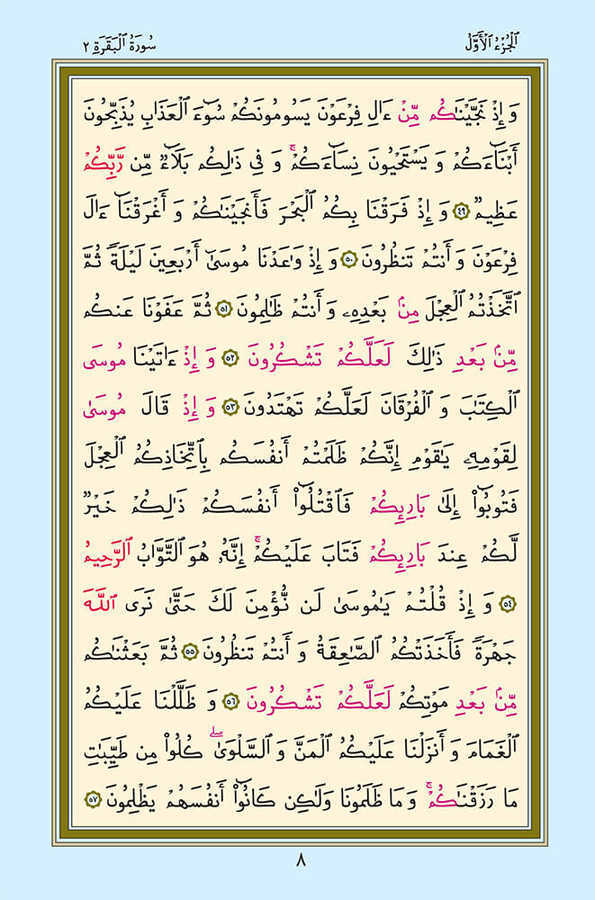 الجُزْءُ الْأَوَّلُ
سُورَةُ الْبَقَرَةِ ٢
وَإِذْ نَجَّيْنَٰكُمْ مِّنْ ءَالِ فِرْعَوْنَ يَسُومُونَكُمْ سُوٓءَ الْعَذَابِ يُذَبِّحُونَ
أَبْنَآءَكُمْ وَيَسْتَحْيُونَ نِسَآءَكُمْ ۚ وَفِى ذَٰلِكُم بَلَآءٌ مِّن رَّبِّكُمْ
عَظِيمٌ ٤٩ وَإِذْ فَرَقْنَا بِكُمُ الْبَحْرَ فَأَنجَيْنَٰكُمْ وَأَغْرَقْنَآ ءَالَ
فِرْعَوْنَ وَأَنتُمْ تَنظُرُونَ ٥٠ وَإِذْ وَٰعَدْنَا مُوسَىٰٓ أَرْبَعِينَ لَيْلَةً ثُمَّ
اتَّخَذْتُمُ الْعِجْلَ مِنۢ بَعْدِهِۦ وَأَنتُمْ ظَٰلِمُونَ ٥١ ثُمَّ عَفَوْنَا عَنكُم
مِّنۢ بَعْدِ ذَٰلِكَ لَعَلَّكُمْ تَشْكُرُونَ ٥٢ وَإِذْ ءَاتَيْنَا مُوسَى
الْكِتَٰبَ وَالْفُرْقَانَ لَعَلَّكُمْ تَهْتَدُونَ ٥٣ وَإِذْ قَالَ مُوسَىٰ
لِقَوْمِهِۦ يَٰقَوْمِ إِنَّكُمْ ظَلَمْتُمْ أَنفُسَكُم بِاتِّخَاذِكُمُ الْعِجْلَ
فَتُوبُوٓا۟ إِلَىٰ بَارِئِكُمْ فَاقْتُلُوٓا۟ أَنفُسَكُمْ ذَٰلِكُمْ خَيْرٌ
لَّكُمْ عِندَ بَارِئِكُمْ فَتَابَ عَلَيْكُمْ ۚ إِنَّهُۥ هُوَ التَّوَّابُ الرَّحِيمُ
٥٤ وَإِذْ قُلْتُمْ يَٰمُوسَىٰ لَن نُّؤْمِنَ لَكَ حَتَّىٰ نَرَى اللَّهَ
جَهْرَةً فَأَخَذَتْكُمُ الصَّٰعِقَةُ وَأَنتُمْ تَنظُرُونَ ٥٥ ثُمَّ بَعَثْنَٰكُم
مِّنۢ بَعْدِ مَوْتِكُمْ لَعَلَّكُمْ تَشْكُرُونَ ٥٦ وَظَلَّلْنَا عَلَيْكُمُ
الْغَمَامَ وَأَنزَلْنَا عَلَيْكُمُ الْمَنَّ وَالسَّلْوَىٰ ۖ كُلُوا۟ مِن طَيِّبَٰتِ
مَا رَزَقْنَٰكُمْ ۚ وَمَا ظَلَمُونَا وَلَٰكِن كَانُوٓا۟ أَنفُسَهُمْ يَظْلِمُونَ ٥٧
٨